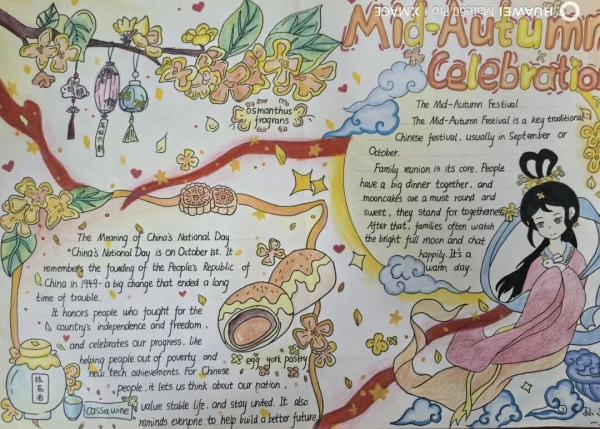 HUAWEI Mate60 Pro XMAGE
Mid-Autumn
Celebration
Osmanthus
fragrans
The Mid-Autumn Festival
The Mid-Autumn Festival is a key traditional
Chinese festival, usually in September or
October.
Family reunion is its core. People
have a big dinner together, and
mooncakes are a must round and
sweet, they stand for togetherness
After that, families often watch
the bright full moon and chat
happily. It's a
warm day.
The Meaning of China's National Day
China's National Day is on October 1st. It
remembers the founding of the People's Republic of
China in 1949-a big change that ended a long
time of trouble.
It honors people who fought for the
country's independence and freedom,
and celebrates our progress, like
helping people out of poverty and
new tech achievements. For Chinese
people, it lets us think about our nation,
value stable life, and stay united. It also
reminds everyone to help build a better future
egg york pastry
桂花酒
Cassia wine